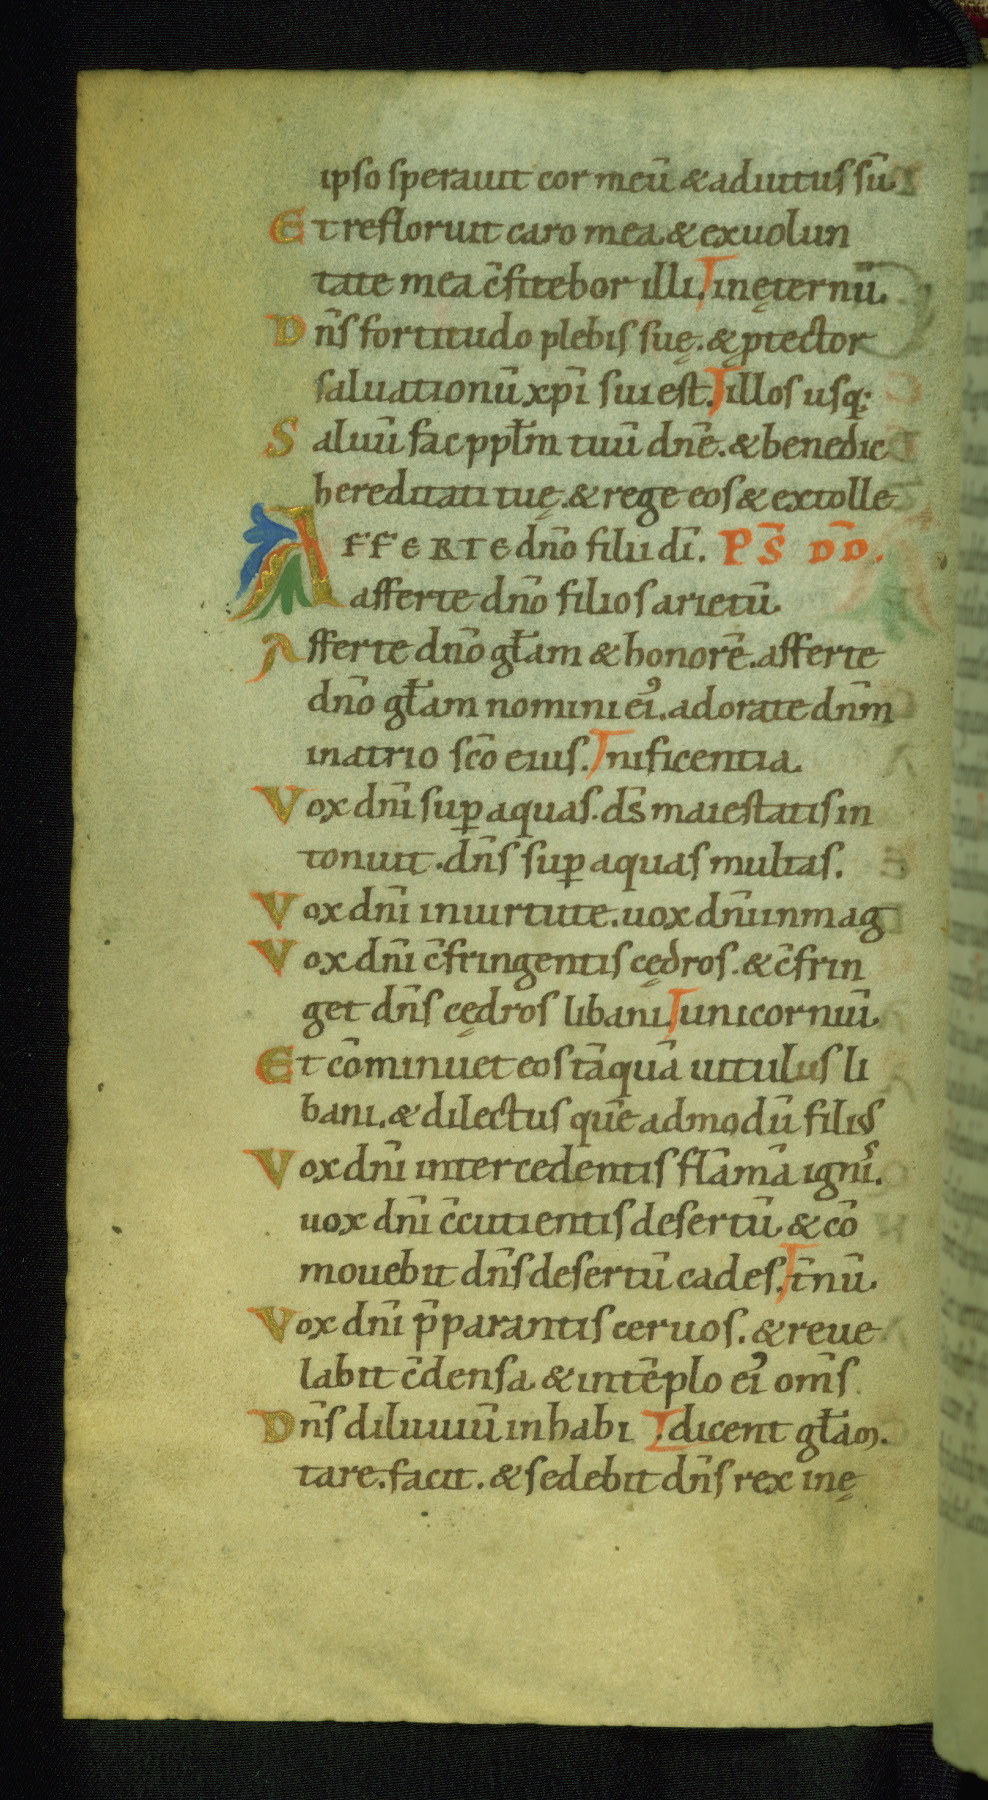 ipso sperauit cor meū & adiutus sū
Et refloruit caro mea & ex uolun
tate mea c̄fitebor illi. in ęternū.
Dn̄s fortitudo plebis suę. & ꝓtector
saluationū xp̄i sui est. illos usq;
Saluū fac ppl̄m tuū dn̄e. & benedic
hereditati tuę. & rege eos & extolle
AFFERTE dn̄o filii dī. PS̄ DD̄.
afferte dn̄o filios arietū.
Afferte dn̄o gl̄am & honorē. afferte
dn̄o gl̄am nomini ei᾽. adorate dn̄m
in atrio sc̄o eius. nificentia.
Vox dn̄i suꝑ aquas. ds̄ maiestatis in
tonuit. dn̄s suꝑ aquas multas.
Vox dn̄i in uirtute. uox dn̄i in mag
Vox dn̄i c̄fringentis cędros. & c̄frin
get dn̄s cędros libani. unicorniū.
Et cōminuet eos tāquā uitulus li
bani. & dilectus quē admodū filiꝰ
Vox dn̄i intercedentis flāmā igni᾽.
uox dn̄i c̄cutientis desertū. & cō
mouebit dn̄s desertū cades. r̄nū.
Vox dn̄i p̄parantis ceruos. & reue
labit c̄densa. & in tēplo ei᾽ om̄s
Dn̄s diluuiū inhabi dicent gl̄am.
tare. facit. & sedebit dn̄s rex in ę